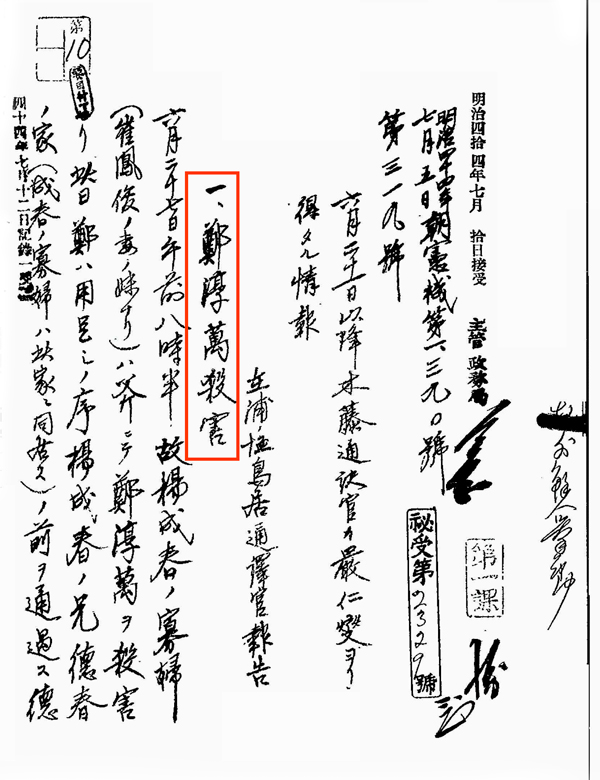 明治四拾四年七月 拾日接受 主管 政務局
明治四十四年
七月五日朝憲機第一三九〇號
第三一九號
第一課
秘受第2329號
六月二十一日以降木藤通訳官カ嚴仁燮ヨリ
得タル情報
在浦塩鳥居通譯官報告
一、鄭淳萬殺害
六月二十七日午前八時半故楊成春ノ寡婦
(崔鳳俊ノ妻ノ妹ナリ)ハ斧ニテ鄭淳萬ヲ殺害
セリ此日鄭ハ用足シノ序楊成春ノ兄德春
ノ家(成春ノ寡婦ハ此家ニ同居ス)ノ前ヲ通過ス德
第10
四十四年七月十二日記錄